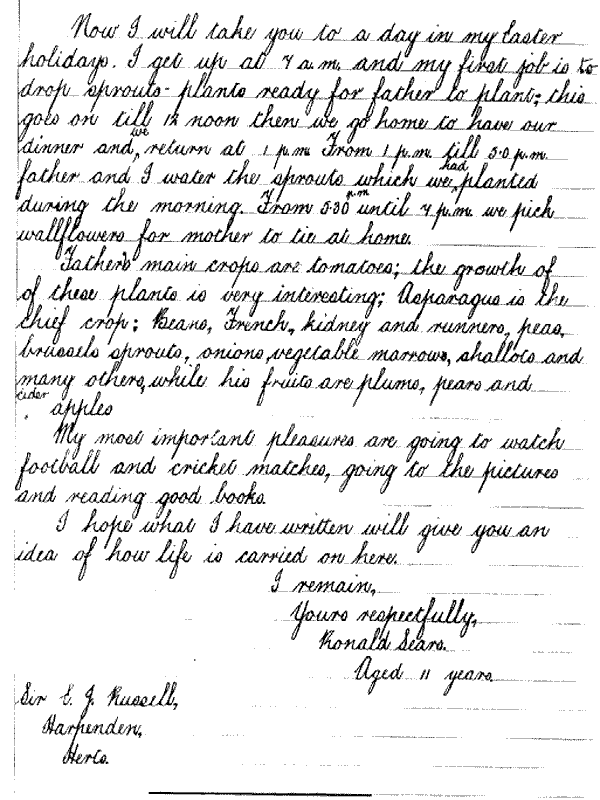 Now I will take you to a day in my Easter
holidays. I get up at 7 a.m. and my first job is to
drop sprouts-plants ready for father to plant; this
goes on till 12 noon then we go home to have our
dinner and we return at 1 p.m. From 1 p.m. till 5.0 p.m.
father and I water the sprouts which we had planted
during the morning. From 5.30 p.m. until 7 p.m. we pick
wallflowers for mother to tie at home.
Father's main crops are tomatoes; the growth of
of these plants is very interesting; Asparagus is the
chief crop; Beans, French, kidney and runners, peas,
brussels sprouts, onions, vegetable marrows, shallots and
many others, while his fruits are plums, pears and
cider apples
My most important pleasures are going to watch
football and cricket matches, going to the pictures
and reading good books.
I hope what I have written will give you an
idea of how life is carried on here.
I remain,
Yours respectfully,
Ronald Sears.
Aged 11 years.
Sir E. J. Russell,
Harpenden,
Herts.